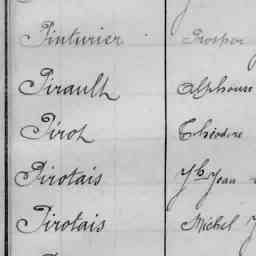 Pinturier Prosper
Pirault Alphonse
Pirot Théodore
Pirotais Jean
Pirotais Michel